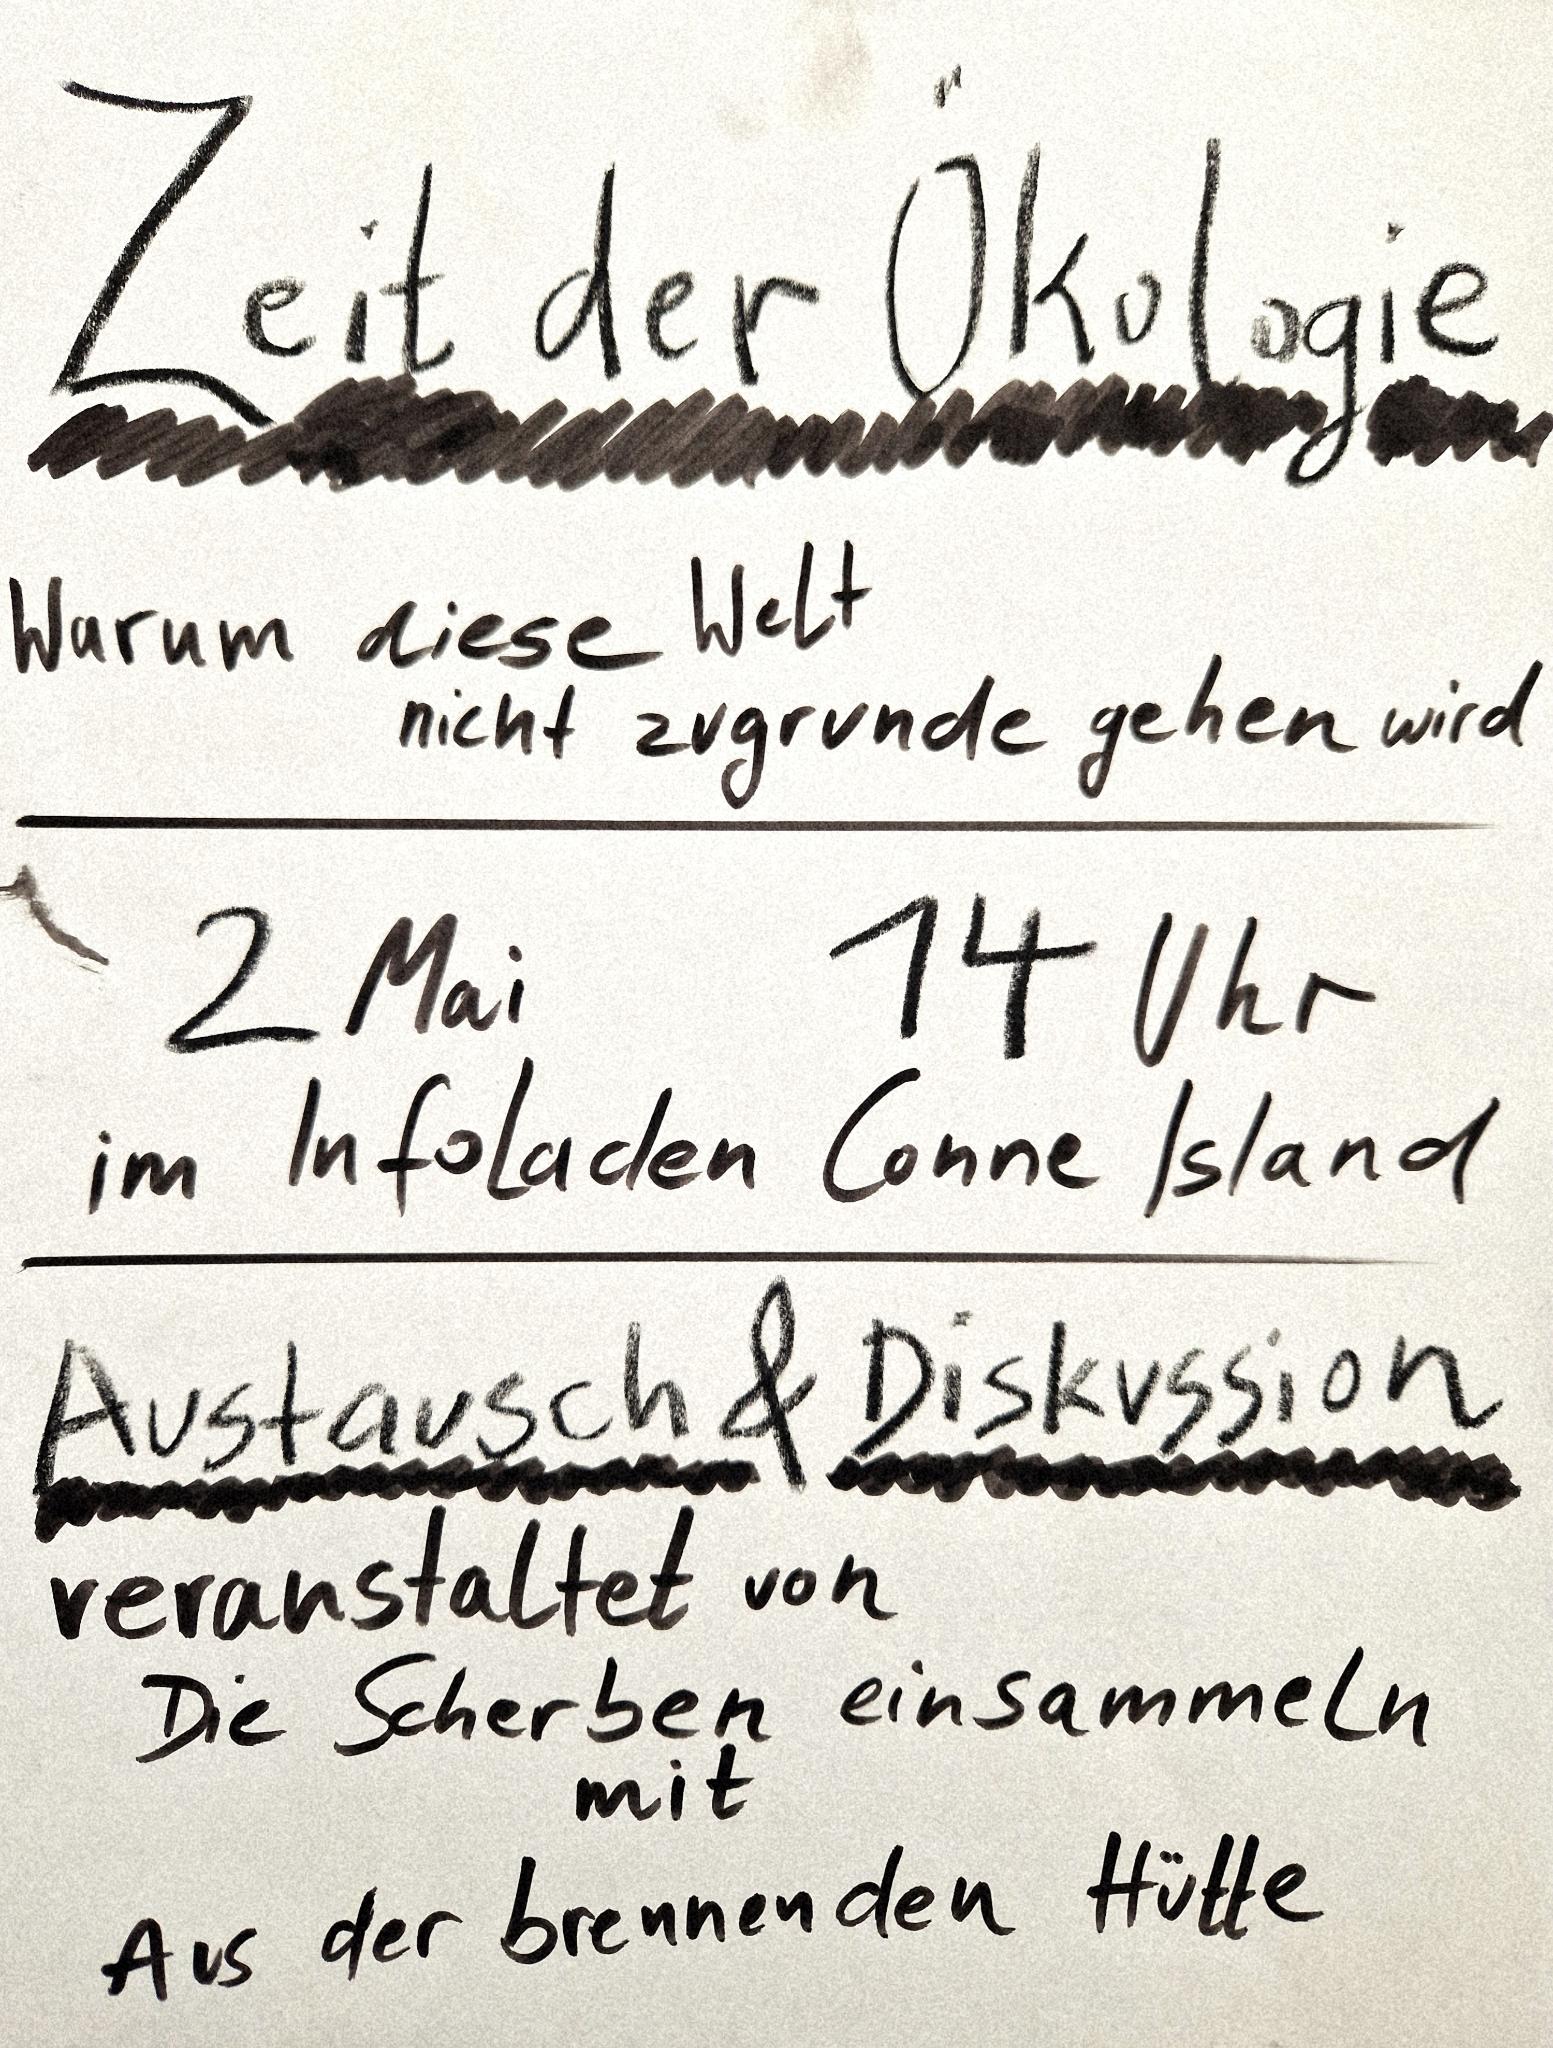 Zeit der Ökologie
Warum diese Welt
nicht zugrunde gehen wird
2 Mai 14 Uhr
im Infoladen Conne Island
Austausch & Diskussion
veranstaltet von
Die Scherben einsammeln
mit
Aus der brennenden Hütte